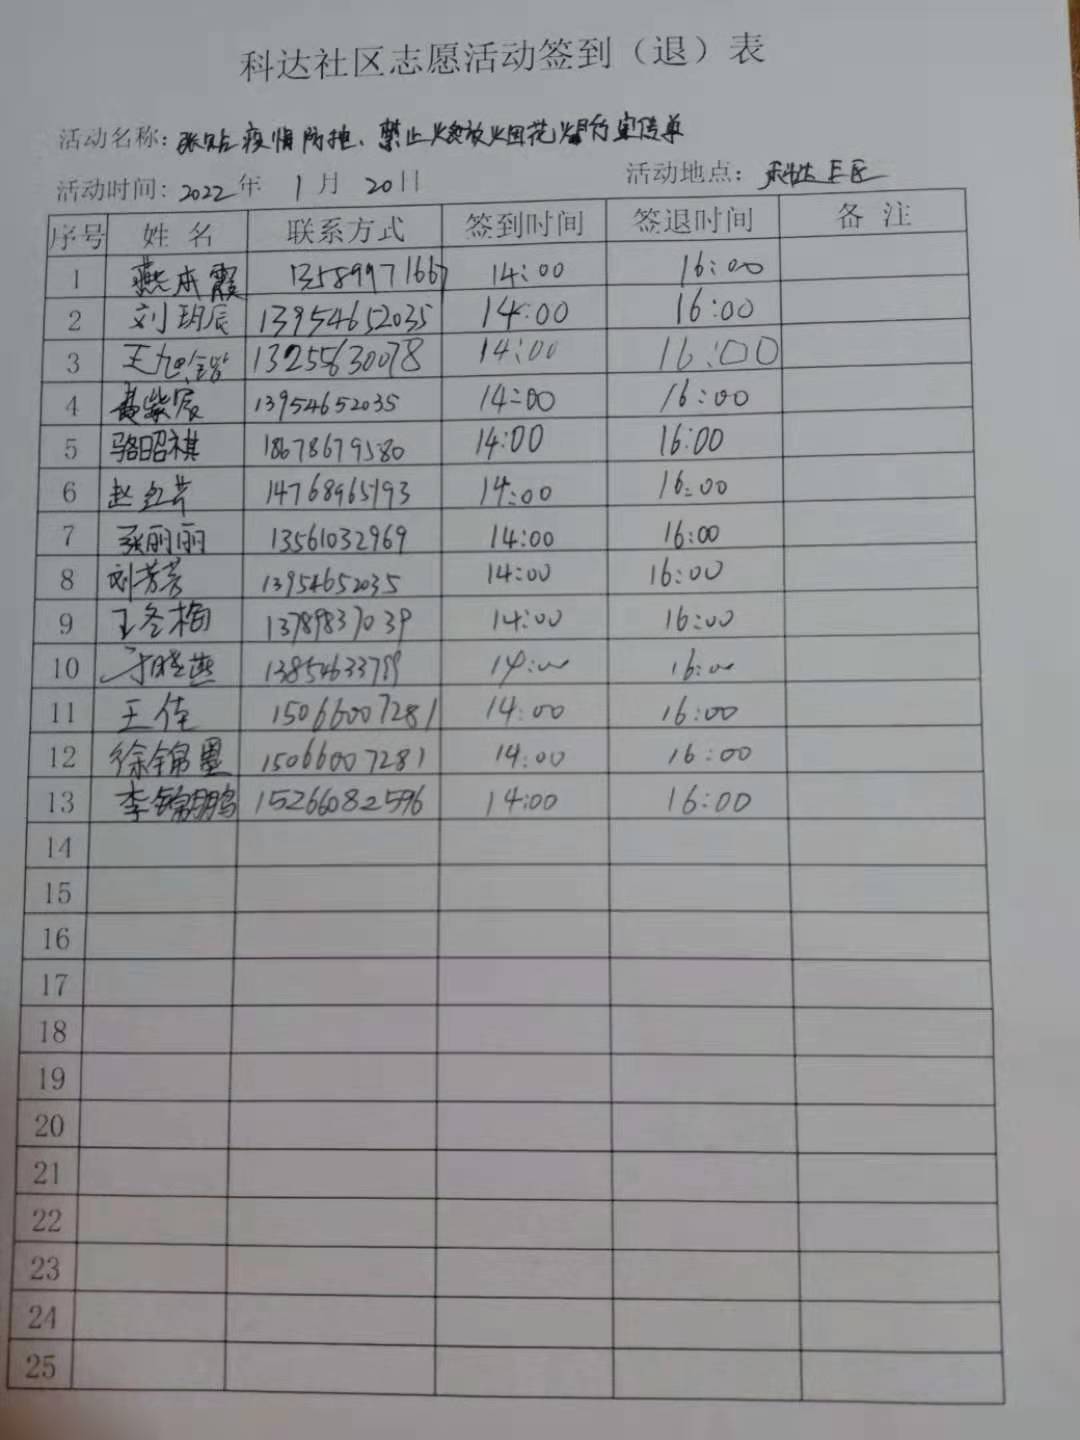 科达社区志愿活动签到（退）表
活动名称：张贴疫情防控、禁止燃放烟花爆竹宣传单
活动时间：2022年 1月 20日 活动地点：科达E区
序号 姓名 联系方式 签到时间 签退时间 备注
1 燕本霞 13589971667 14:00 16:00
2 刘玥辰 13954652035 14:00 16:00
3 王旭锴 13255630078 14:00 16:00
4 聂紫宸 13954652035 14:00 16:00
5 骆昭祺 18678679580 14:00 16:00
6 赵红芹 14768965193 14:00 16:00
7 张丽丽 13561032969 14:00 16:00
8 刘芳芳 13954652035 14:00 16:00
9 王冬梅 13789837039 14:00 16:00
10 于晓燕 13854633799 14:00 16:00
11 王佳 15066007281 14:00 16:00
12 徐锦墨 15066007281 14:00 16:00
13 李锦鹏 15266082596 14:00 16:00
14
15
16
17
18
19
20
21
22
23
24
25